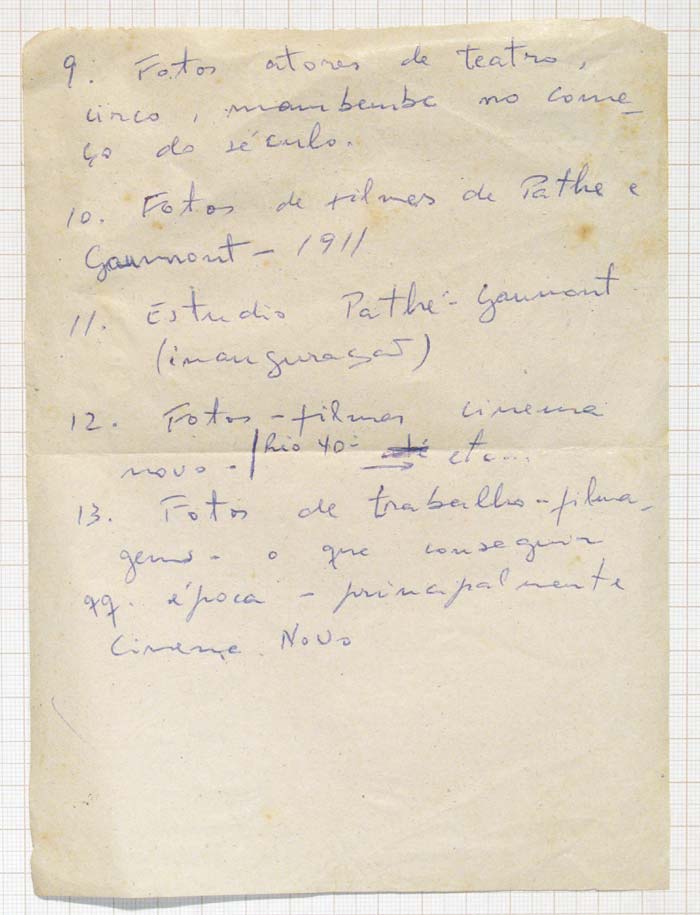 9. Fotos atores de teatro,
circo, mambembe no come-
ço do século.
10. Fotos de filmes de Pathe e
Gaumont - 1911
11. Estudio Pathé-Gaumont
(inauguração)
12. Fotos - filmes cinema
novo - / Rio 40º até → etc...
13. Fotos de trabalho - filma-
gens - o que conseguir
qq. época - principalmente
Cinema Novo